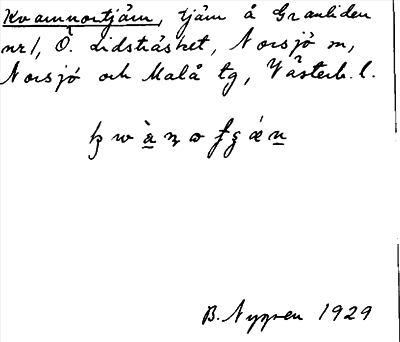 Kvarnnortjärn, tjärn å Granliden
nr 1, Ö. Lidsträsket, Norsjö sn,
Norsjö och Malå tg, Västerb. l.
B. Nygren 1929